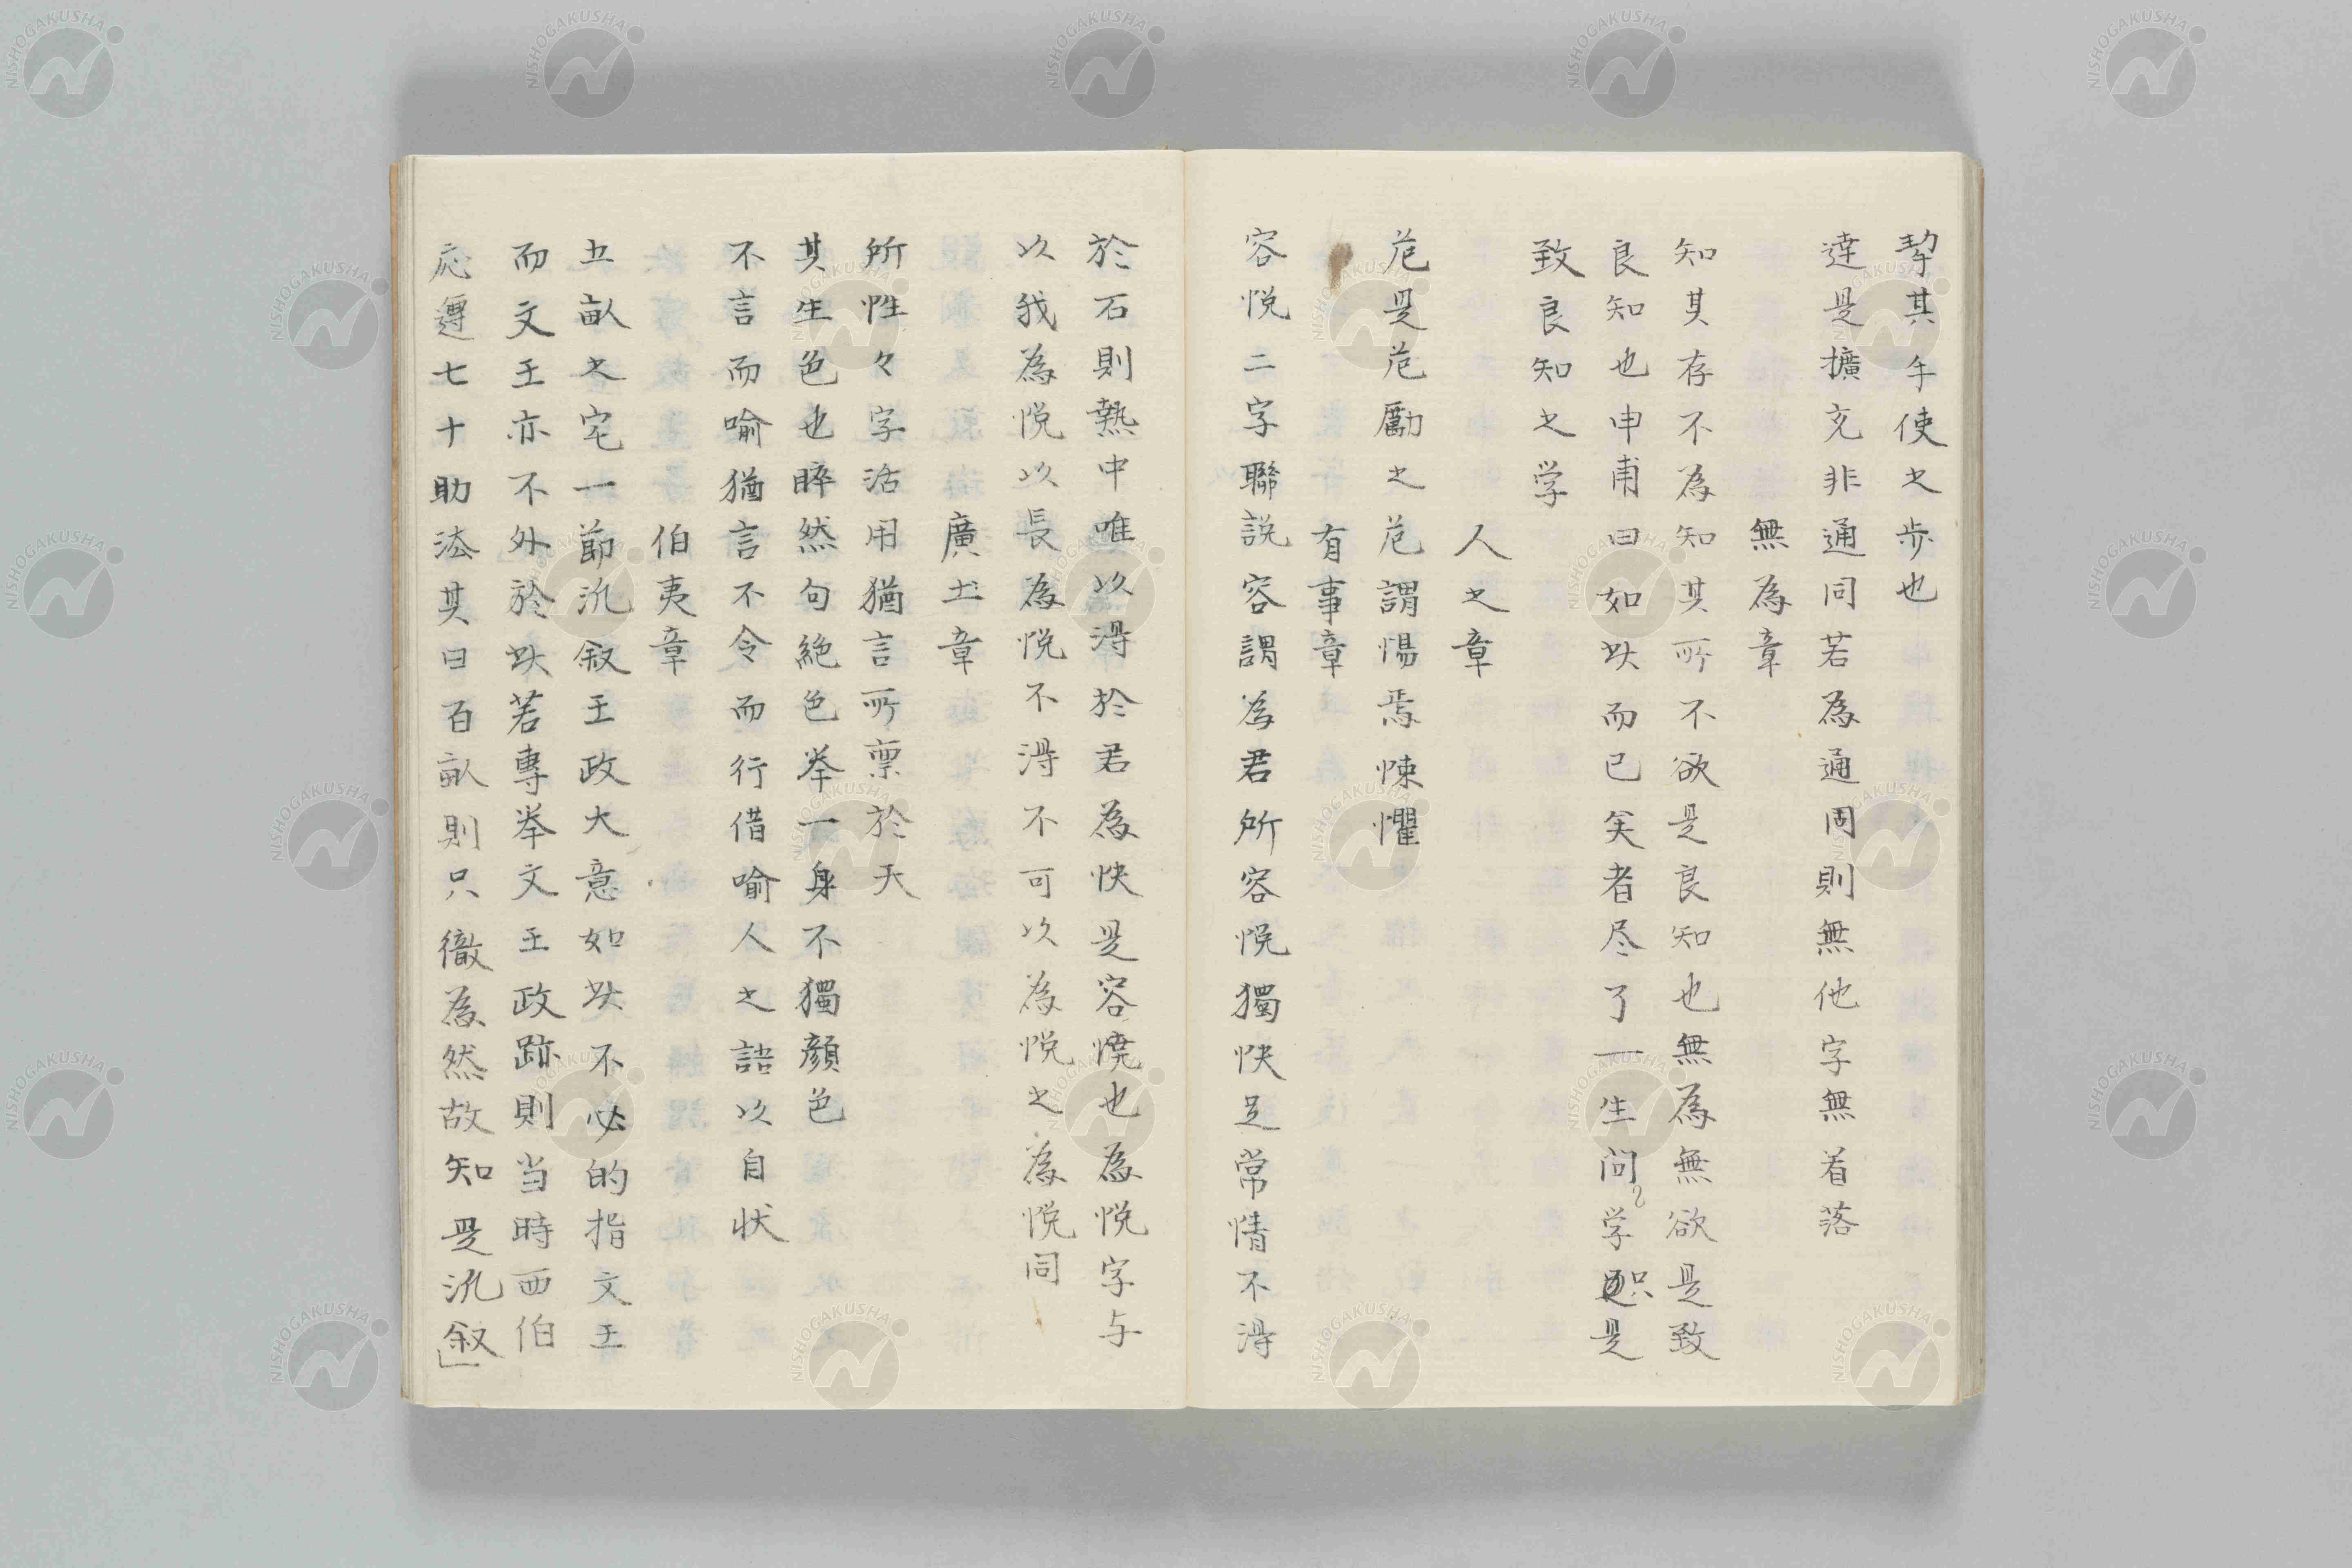 挈其手使之歩也
達是擴充非通同若為通同則無他字無着落
無為章
知其存不為知其所不欲是良知也無為無欲是致
良知也申甫曰如此而已矣者尽了一生問学是
致良知之学
人之章
危是危勵之危謂惕焉悚懼
有事章
容悦二字聯説容謂為君所容悦獨快足常情不得
於石則熱中唯以得於君為快是容悦也為悦字与
以我為悦以長為悦不得不可以為悦之為悦同
廣土章
所性々字活用猶言所稟於天
其生色也睟然句絶色挙一身不獨顔色
不言而喻猶言不令而行借喻人之語以自状
伯夷章
五畝之宅一節汎叙王政大意如此不必的指文王
而文王亦不外於此若專挙文王政跡則当時西伯
応遵七十助法其曰百畝則只徹為然故知是汎叙」
NISHOGAKUSHA